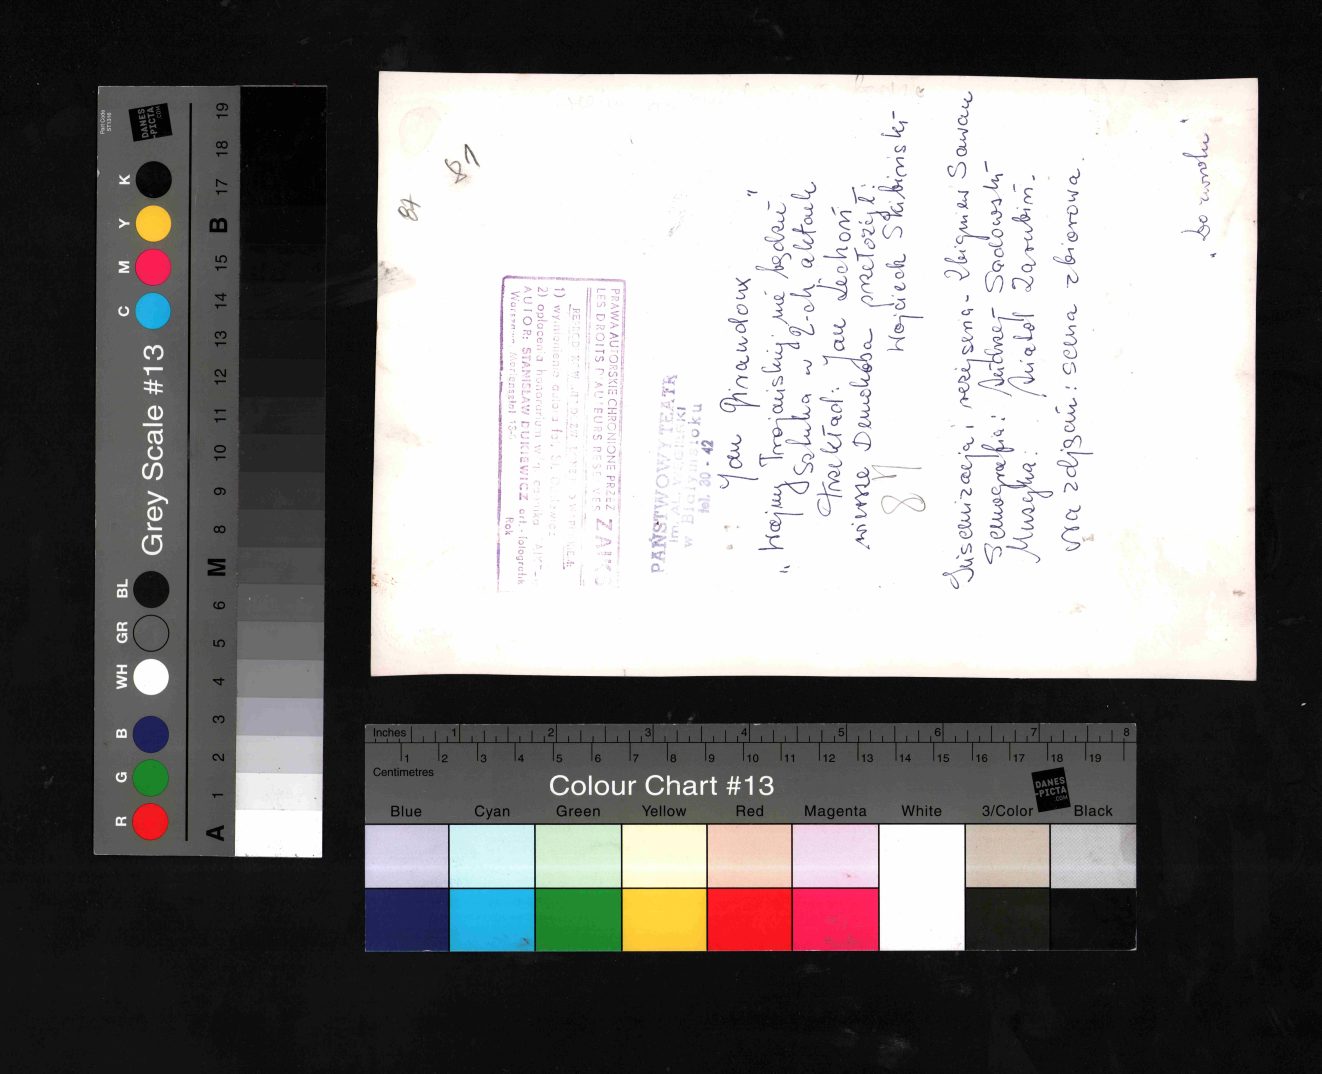 84
81
PRAWA AUTORSKIE CHRONIONE PRZEZ ZAIKS
LES DROITS D'AUTEURS RESERVÉS
1)
2) opłacenia honorarium
AUTOR: STANISŁAW DUKIEWICZ art. fotografik
Warszawa, Mariensztat
Rok
PAŃSTWOWY TEATR
im. Al. Węgierki
w Białymstoku
tel. 30-42
Jan Giraudoux
"Wojny Trojańskiej nie będzie"
Sztuka w 2-ch aktach
Przekład: Jan Lechoń
wiersze Demokosa przełożył:
Wojciech Skibiński
87
Inscenizacja i reżyseria - Zbigniew Sawan
Scenografia: Andrzej Sadowski
Muzyka: Anatol Zarubin.
Na zdjęciu: scena zbiorowa.
"Do zwrotu"
Part Code
ST1316
DANES
-PICTA
.COM
R G B WH GR BL C M Y K
Grey Scale #13
A 1 2 3 4 5 6 M 8 9 10 11 12 13 14 15 B 17 18 19
Inches 1 2 3 4 5 6 7 8
1 2 3 4 5 6 7 8 9 10 11 12 13 14 15 16 17 18 19
Centimetres
Colour Chart #13
DANES
-PICTA
.COM
Blue Cyan Green Yellow Red Magenta White 3/Color Black